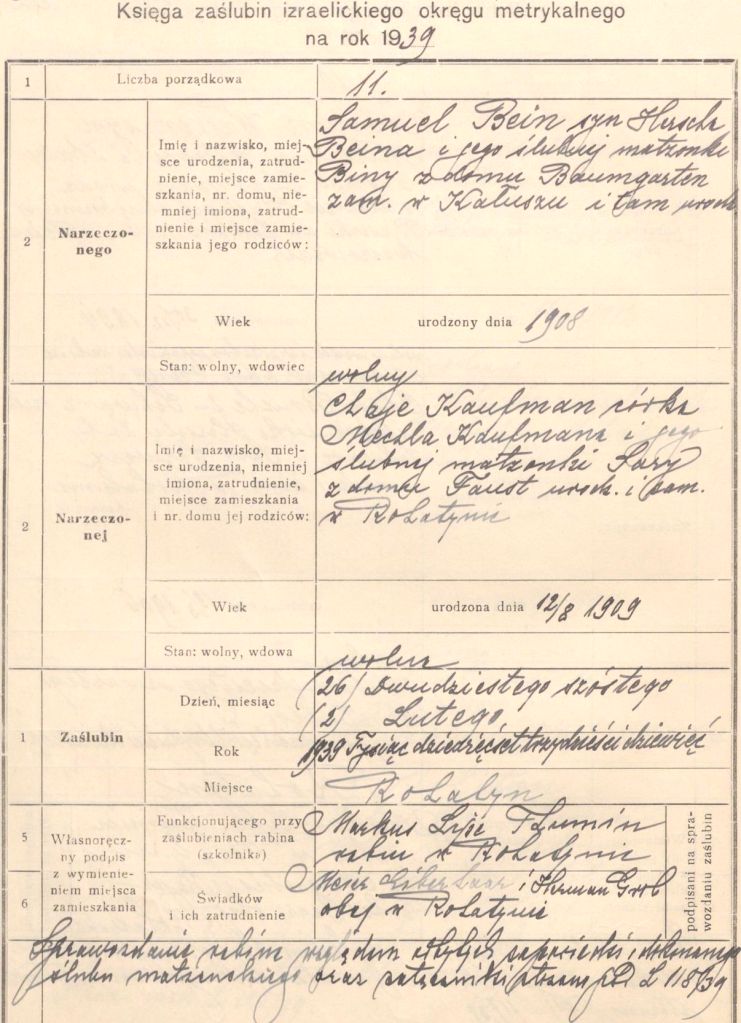 Księga zaślubin izraelickiego okręgu metrykalnego
na rok 1939
1 Liczba porządkowa 11.
2 Narzeczo-
nego
Imię i nazwisko, miej-
sce urodzenia, zatrud-
nienie, miejsce zamie-
szkania, nr. domu, nie-
mniej imiona, zatrud-
nienie i miejsce zamie-
szkania jego rodziców:
Samuel Bein syn Herscha
Beina i jego ślubnej małżonki
Biny z domu Baumgarten
zam. w Kałuszu i tam urodz
Wiek urodzony dnia 1908
Stan: wolny, wdowiec wolny
2 Narzeczo-
nej
Imię i nazwisko, miej-
sce urodzenia, niemniej
imiona, zatrudnienie,
miejsce zamieszkania
i nr. domu jej rodziców:
Chaje Kaufman córka
Mechla Kaufmana i jego
ślubnej małżonki Sary
z domu Faust urodz. i zam.
w Rohatynie
Wiek urodzona dnia 12/8 1909
Stan: wolny, wdowa wolna
1 Zaślubin
Dzień, miesiąc (26) Dwudziestego szóstego
(2) Lutego
Rok 1939 Tysiąc dziewięćset trzydzieści dziewięć
Miejsce Rohatyn
5 6 Własnoręcz-
ny podpis
z wymienie-
niem miejsca
zamieszkania
Funkcjonującego przy
zaślubieniach rabina
(szkolnika)
Markus Lipe
rabin w Rohatynie
Świadków
i ich zatrudnienie
Meier i Herman
obaj w Rohatynie
podpisani na spra-
wozdaniu zaślubin
Sprawozdanie rabina względem odbytych zapowiedzi i dokonanego
ślubu małżeńskiego oraz załączniki pod L 118/39